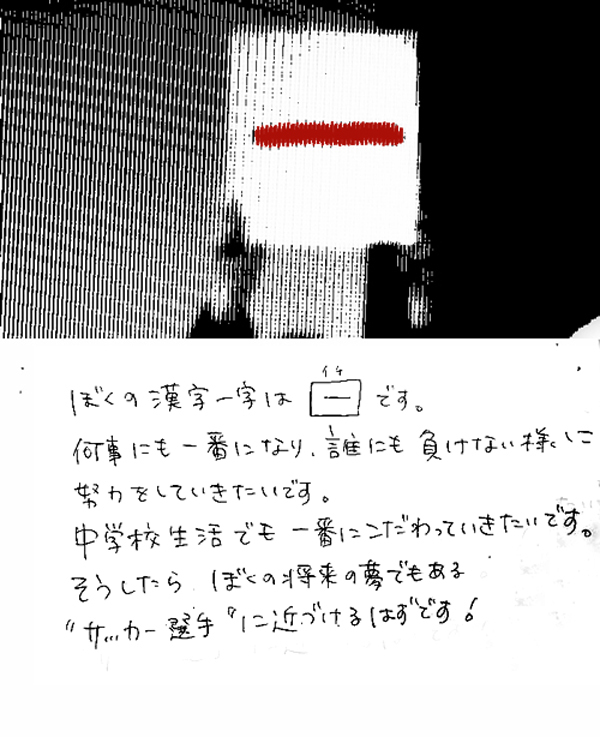 一
ぼくの漢字一字は 一 です。
イチ
何事にも一番になり、誰にも負けない様に
努力をしていきたいです。
中学校生活でも一番にこだわっていきたいです。
そうしたら ぼくの将来の夢でもある
"サッカー選手"に近づけるはずです!